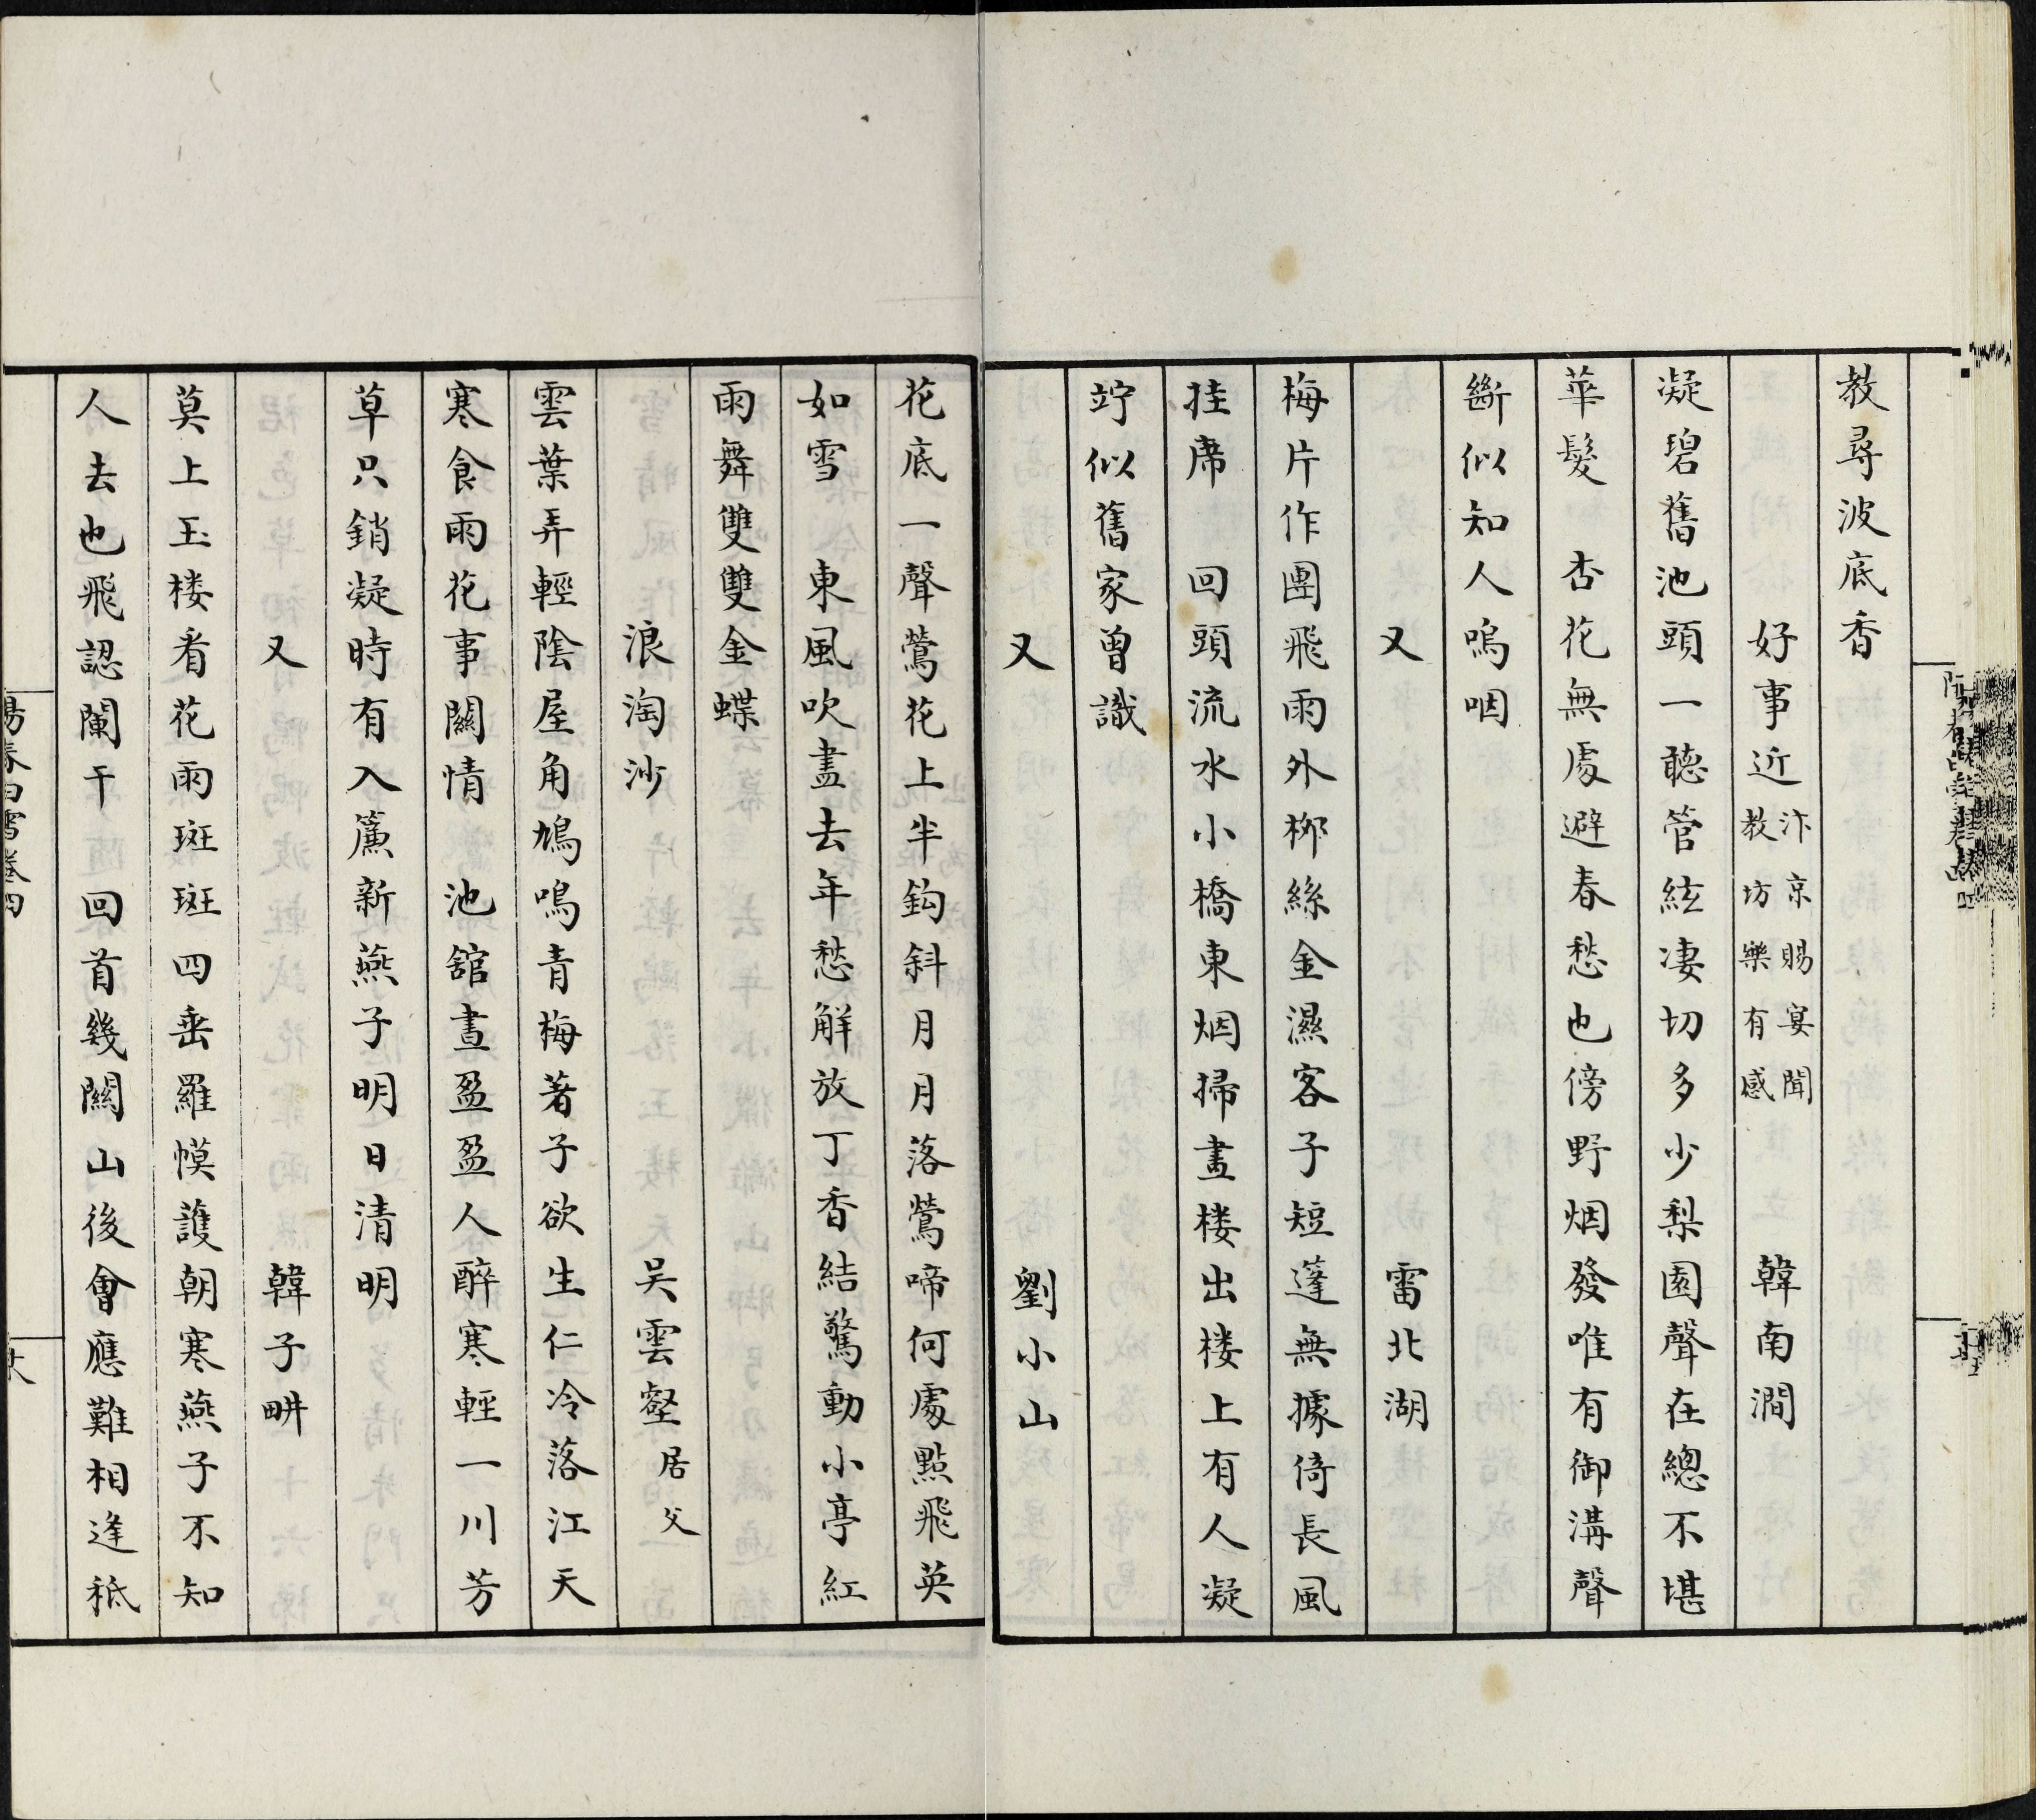 教尋波底香
好事近 汴京賜宴聞教坊樂有感 韓南澗
凝碧舊池頭一聽管絃淒切多少梨園聲在總不堪
華髮 杏花無處避春愁也傍野烟發唯有御溝聲
斷似知人嗚咽
又 雷北湖
梅片作團飛雨外栁絲金濕客子短蓬無據倚長風
挂席 回頭流水小橋東烟掃畫楼出楼上有人凝
竚似舊家曾識
又 劉小山
花底一聲鶯花上半鈎斜月月落鶯啼何處點飛英
如雪 東風吹盡去年愁解放丁香結驚動小亭紅
雨舞雙雙金蝶
浪淘沙 吴雲壑 居父
雲葉弄輕陰屋角鳩鳴青梅著子欲生仁冷落江天
寒食雨花事關情 池舘晝盈盈人醉寒輕一川芳
草只銷凝時有入簾新燕子明日清明
又 韓子畊
莫上玉楼看花雨斑斑四垂羅幙護朝寒燕子不知
人去也飛認闌干 回首幾關山後會應難相逢秖
陽春白雪卷四